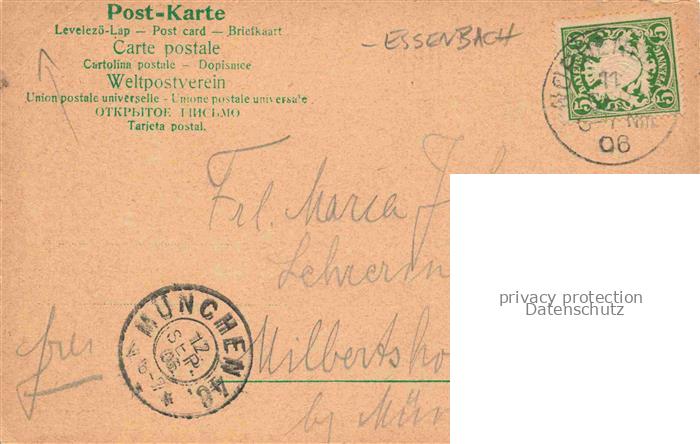 Post-Karte
Levelező-Lap — Post card — Briefkaart
Carte postale
Cartolina postale — Dopisnice
Weltpostverein
Union postale universelle - Unione postale universale
ОТКРЫТОЕ ПИСЬМО
Tarjeta postal.
– ESSENBACH
BAYERN
PFENNIG
5 5
5 5
11
06
Frl. Maria
Lehrerin
Milbertsho
by Mün
frei
MÜNCHEN 46.
12
SEP.
06
privacy protection
Datenschutz